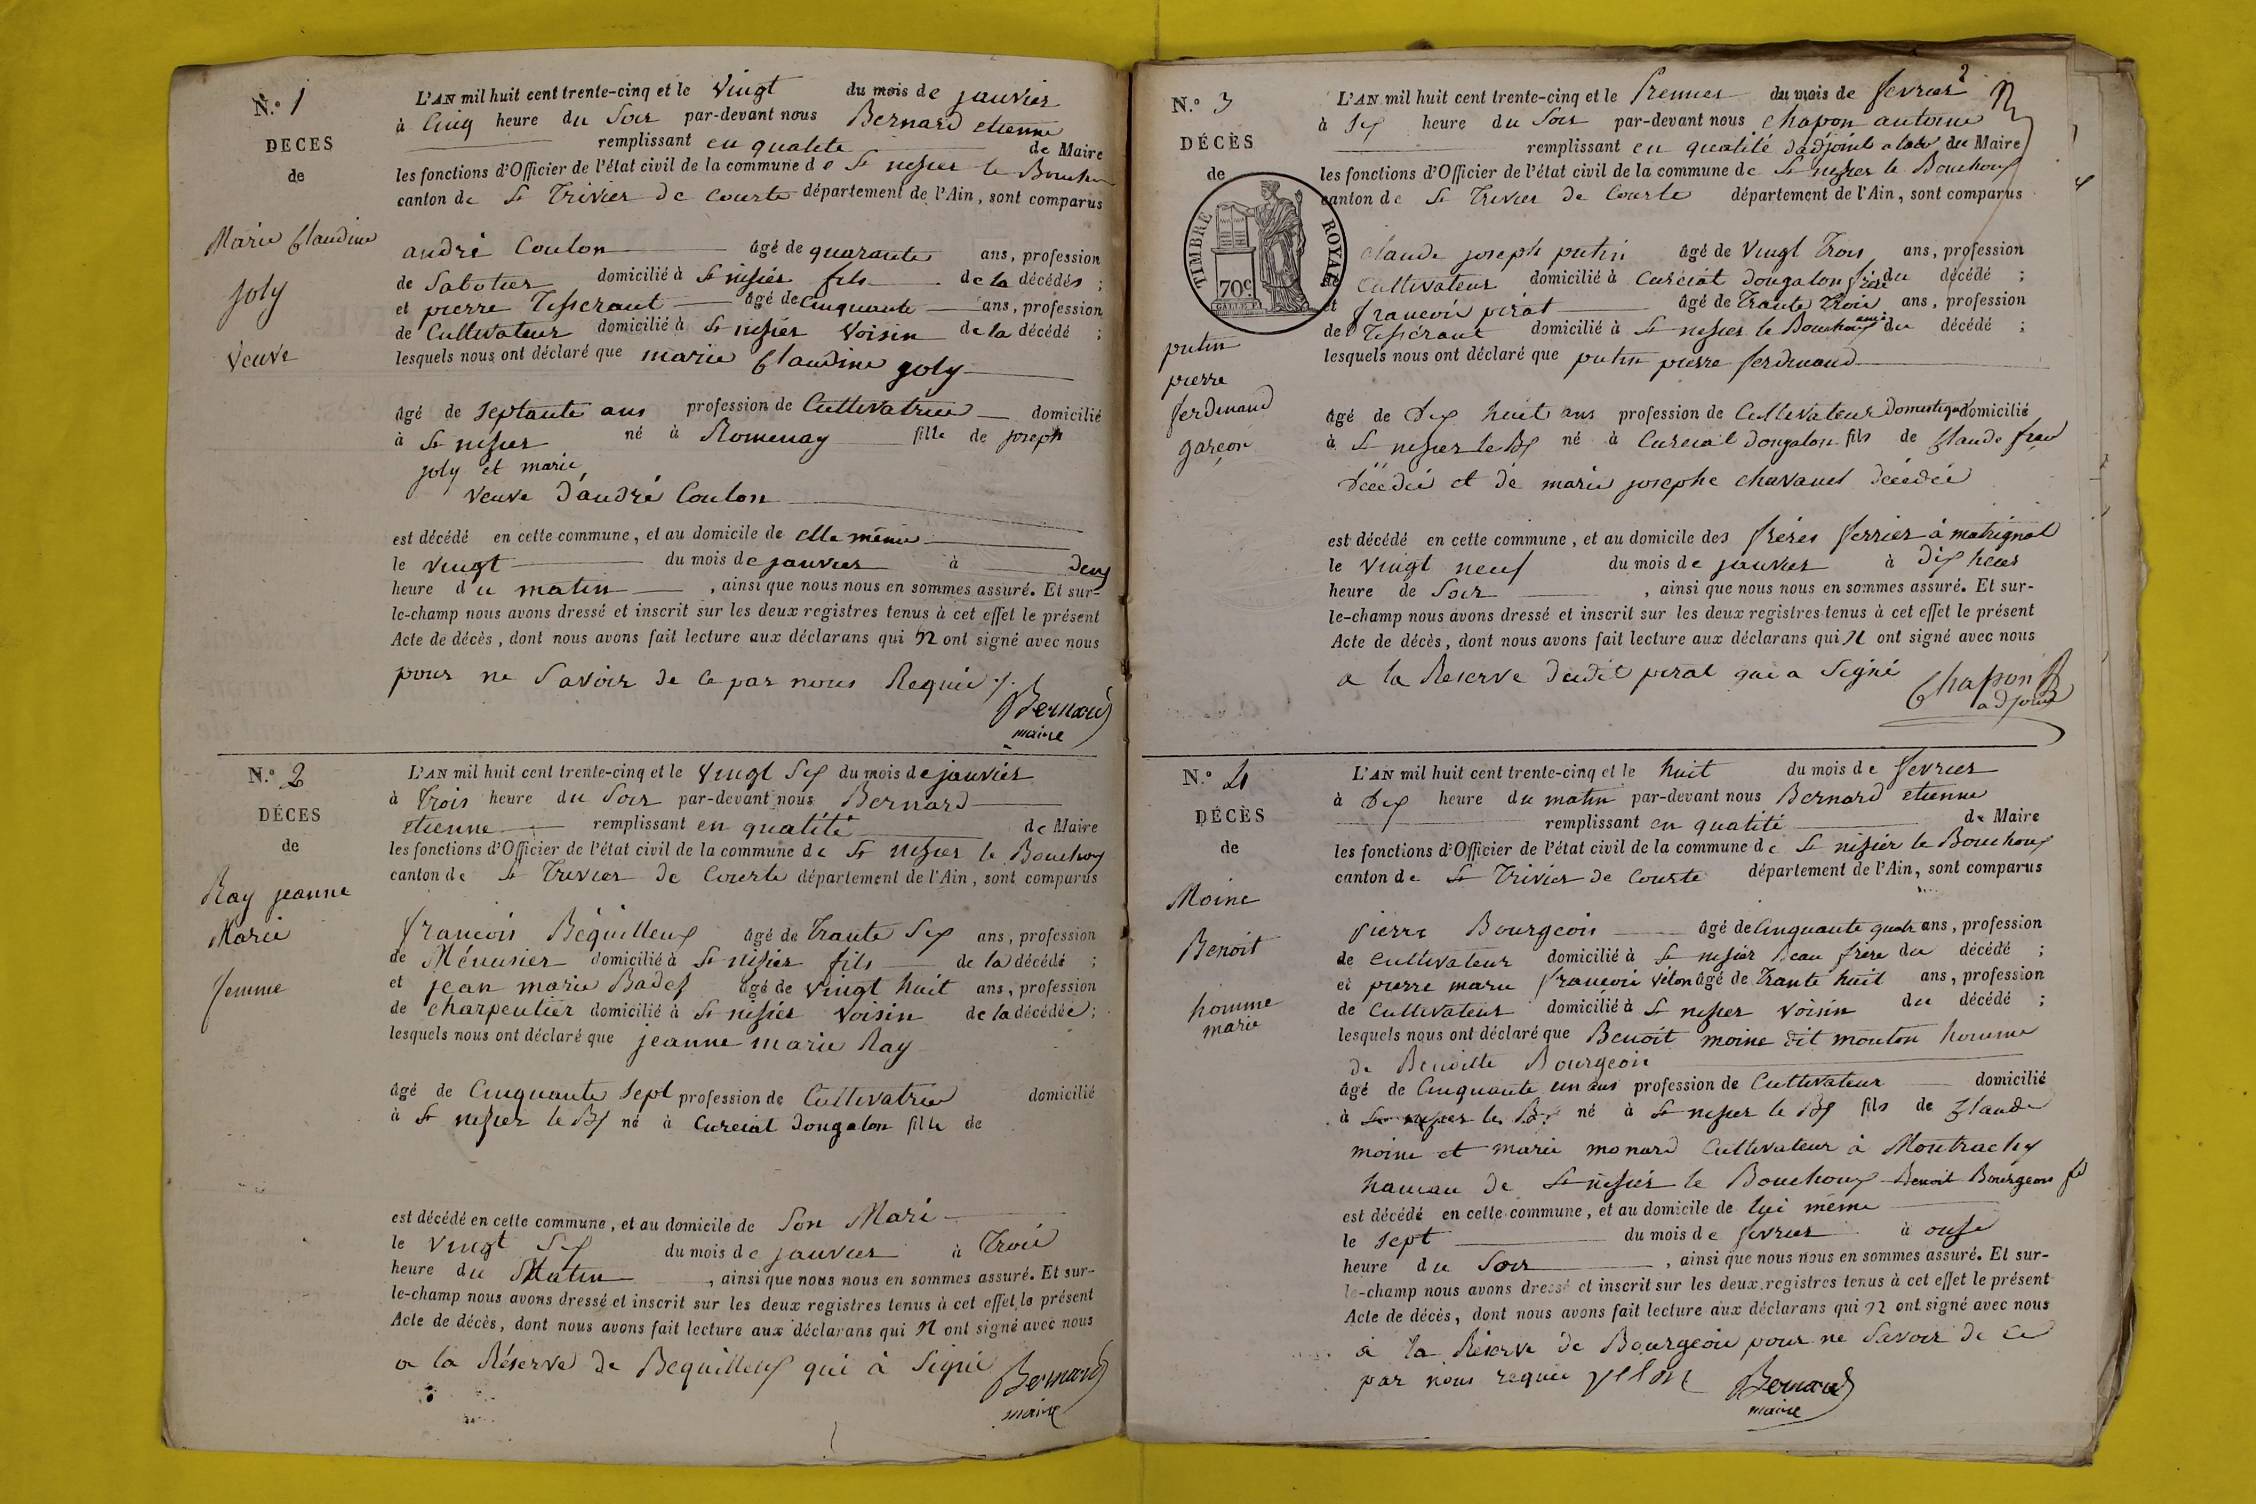 N.o 1
DECES
de
Marie Claudine
joly
veuve
L'AN mil huit cent trente-cinq et le vingt du mois de janvier
à Cinq heure du Soir par-devant nous Bernard etienne
remplissant en qualité de Maire
les fonctions d'Officier de l'état civil de la commune de St nisier le Bouchou
canton de St Trivier de Courte département de l'Ain, sont comparus
andré Coulon âgé de quarante ans, profession
de Sabotier domicilié à St nisier fils de la décédés ;
et pierre Tisserant âgé de Cinquante ans, profession
de Cultivateur domicilié à St nisier voisin de la décédé ;
lesquels nous ont déclaré que marie Claudine joly
âgé de septante ans profession de Cultivatrice domicilié
à St nisier né à Romenay fille de joseph
joly et marie
veuve d'andré Coulon
est décédé en cette commune, et au domicile de elle même
le vingt du mois de janvier à deux
heure du matin , ainsi que nous nous en sommes assuré. Et sur-
le-champ nous avons dressé et inscrit sur les deux registres tenus à cet effet le présent
Acte de décès, dont nous avons fait lecture aux déclarans qui n ont signé avec nous
pour ne Savoir de ce par nous Requis ./.
Bernard
maire
N.o 2
DÉCES
de
Ray jeanne
Marie
femme
L'AN mil huit cent trente-cinq et le vingt Six du mois de janvier
à trois heure du Soir par-devant nous Bernard
etienne remplissant en qualité de Maire
les fonctions d'Officier de l'état civil de la commune de St nisier le Bouchoux
canton de St Trivier de Courte département de l'Ain, sont comparus
francois Béquilleux âgé de trante Six ans, profession
de Ménusier domicilié à St nisier fils de la décédé ;
et jean marie Badef âgé de vingt huit ans, profession
de charpentier domicilié à St nisier voisin de la décédée ;
lesquels nous ont déclaré que jeanne marie Ray
âgé de Cinquante Sept profession de Cultivatrice domicilié
à St nisier le Bx né à Curciat dongalon fille de
est décédé en cette commune, et au domicile de Son Mari
le vingt Six du mois de janvier à trois
heure du Matin , ainsi que nous nous en sommes assuré. Et sur-
le-champ nous avons dressé et inscrit sur les deux registres tenus à cet effet le présent
Acte de décès, dont nous avons fait lecture aux déclarans qui n ont signé avec nous
a la Réserve de Bequilleux qui à Signé
Bernard
maire
2
N.o 3
DÉCÈS
de
TIMBRE ROYALE
70c
putin
pierre
ferdinand
garçon
L'AN mil huit cent trente-cinq et le Premier du mois de fevrier
à Six heure du Soir par-devant nous chapon antoine
remplissant en qualité d'adjoint du Maire
les fonctions d'Officier de l'état civil de la commune de St nisier le Bouchoux
canton de St Trivier de Courte département de l'Ain, sont comparus
claude joseph putin âgé de vingt trois ans, profession
de Cultivateur domicilié à Curciat dongalon frère du décédé ;
et francois pirat âgé de trante trois ans, profession
de Tisserant domicilié à St nisier le Bouchoux ami du décédé ;
lesquels nous ont déclaré que putin pierre ferdinand
âgé de dix huit ans profession de Cultivateur Domestique domicilié
à St nisier le Bx né à Curciat dongalon fils de Claude fran
décédé et de marie josephe chavanel décédée
est décédé en cette commune, et au domicile des frères ferrier à matrignat
le vingt neuf du mois de janvier à dix heur
heure de Soir , ainsi que nous nous en sommes assuré. Et sur-
le-champ nous avons dressé et inscrit sur les deux registres tenus à cet effet le présent
Acte de décès, dont nous avons fait lecture aux déclarans qui n ont signé avec nous
a la Reserve dudit pirat qui a Signé
Chapon
adjoint
N.o 4
DÉCÈS
de
Moine
Benoit
homme
marie
L'AN mil huit cent trente-cinq et le huit du mois de fevrier
à Dix heure du matin par-devant nous Bernard etienne
remplissant en qualité de Maire
les fonctions d'Officier de l'état civil de la commune de St nisier le Bouchoux
canton de St Trivier de Courte département de l'Ain, sont comparus
pierre Bourgeois âgé de Cinquante quatr ans, profession
de Cultivateur domicilié à St nisier Beau frère du décédé ;
et pierre marie francois vélon âgé de trante huit ans, profession
de Cultivateur domicilié à St nisier voisin du décédé ;
lesquels nous ont déclaré que Benoit moine dit mouton homme
de Benoitte Bourgeois
âgé de Cinquante un ans profession de Cultivateur domicilié
à St nisier le Bx né à St nisier le Bx fils de Claude
moine et marie monard Cultivateur à Montrachy
hameau de St nisier le Bouchoux Benoit Bourgeon
est décédé en cette commune, et au domicile de lui même
le sept du mois de fevrier à onze
heure du Soir , ainsi que nous nous en sommes assuré. Et sur-
le-champ nous avons dressé et inscrit sur les deux registres tenus à cet effet le présent
Acte de décès, dont nous avons fait lecture aux déclarans qui n ont signé avec nous
à la Réserve de Bourgeois pour ne Savoir de ce
par nous requis velon
Bernard
maire